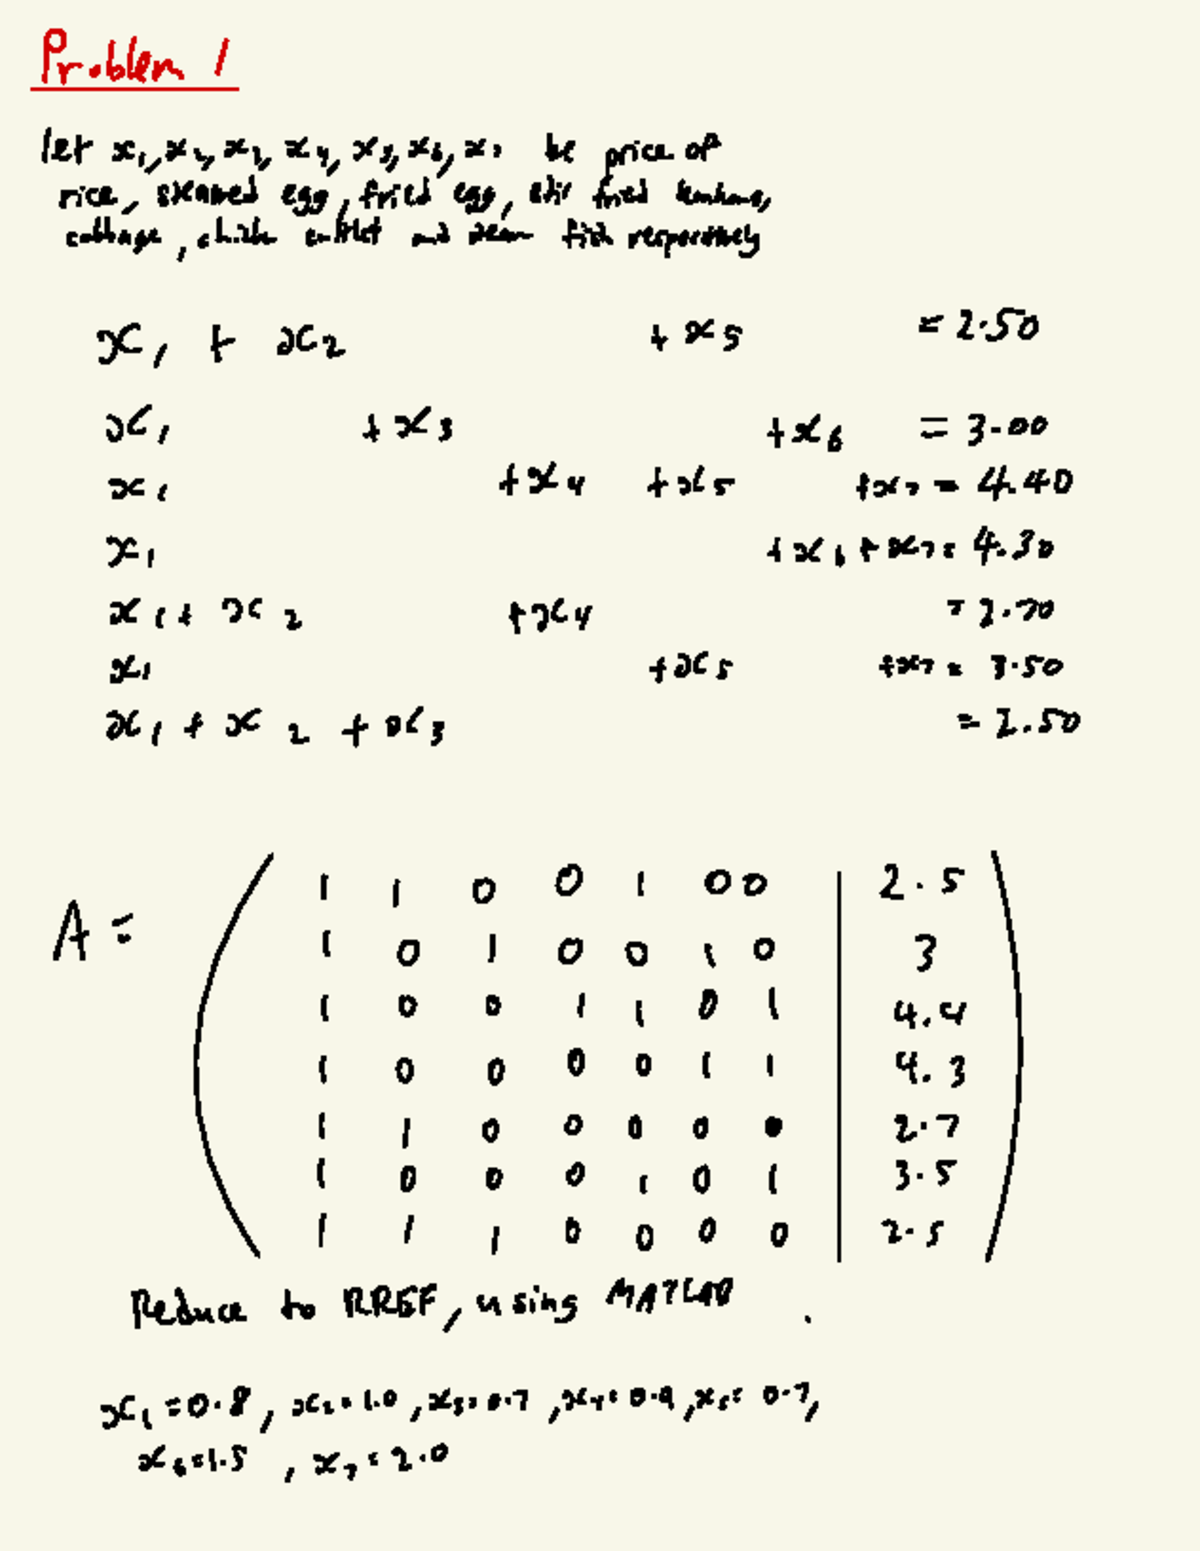 Problem 1
let x₁, x₂, x₃, x₄, x₅, x₆, x₇ be price of
rice, steamed egg, fried egg, stir fried
cabbage, cutlet and fish
x₁ + x₂ + x₅ = 2.50
x₁ + x₃ + x₆ = 3.00
x₁ + x₄ + x₅ + x₇ = 4.40
x₁ + x₆ + x₇ = 4.30
x₁ + x₂ + x₄ = 2.70
x₁ + x₅ + x₇ = 3.50
x₁ + x₂ + x₃ = 2.50
A =
1 1 0 0 1 0 0 | 2.5
1 0 1 0 0 1 0 | 3
1 0 0 1 1 0 1 | 4.4
1 0 0 0 0 1 1 | 4.3
1 1 0 0 0 0 0 | 2.7
1 0 0 0 1 0 1 | 3.5
1 1 1 0 0 0 0 | 2.5
Reduce to RREF, using MATLAB .
x₁ = 0.8, x₂ = 1.0, x₃ = 0.7, x₄ = 0.9, x₅ = 0.7,
x₆ = 1.5, x₇ = 2.0